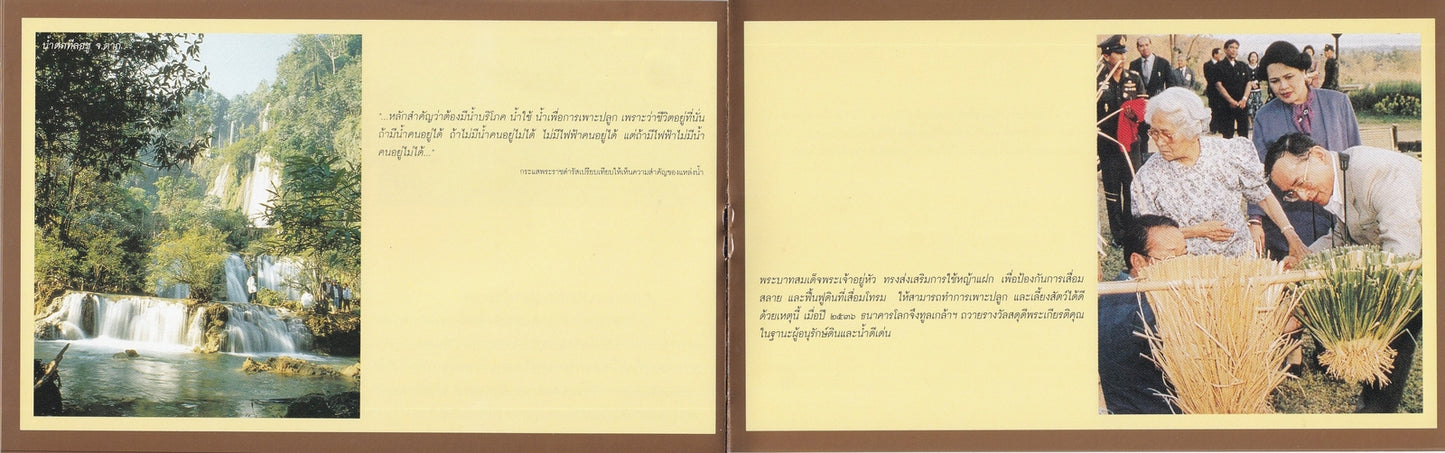 น้ำตกทีลอซู จ.ตาก
"...หลักสำคัญว่าต้องมีน้ำบริโภค น้ำใช้ น้ำเพื่อการเพาะปลูก เพราะว่าชีวิตอยู่ที่นั่น
ถ้ามีน้ำคนอยู่ได้ ถ้าไม่มีน้ำคนอยู่ไม่ได้ ไม่มีไฟฟ้าคนอยู่ได้ แต่ถ้ามีไฟฟ้าไม่มีน้ำ
คนอยู่ไม่ได้..."
กระแสพระราชดำรัสเปรียบเทียบให้เห็นความสำคัญของแหล่งน้ำ
พระบาทสมเด็จพระเจ้าอยู่หัว ทรงส่งเสริมการใช้หญ้าแฝก เพื่อป้องกันการเสื่อม
สลาย และฟื้นฟูดินที่เสื่อมโทรม ให้สามารถทำการเพาะปลูก และเลี้ยงสัตว์ได้ดี
ด้วยเหตุนี้ เมื่อปี ๒๕๓๖ ธนาคารโลกจึงทูลเกล้าฯ ถวายรางวัลสดุดีพระเกียรติคุณ
ในฐานะผู้อนุรักษ์ดินและน้ำดีเด่น